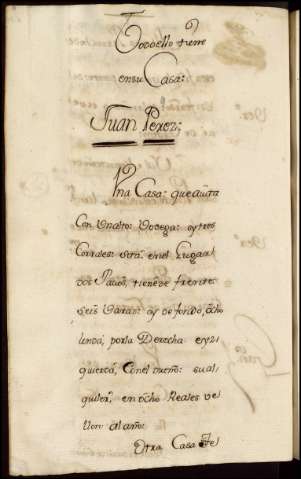 Todo ello tiene
en su Casa:
Juan Perez;
Una Casa: que
Con Unalto: Vodega: oytres
Corrales: en el Lugar
dos tiene de frente
seis Varas: oy de fondo, ocho
linda, por la Derecha eyz
quierda, Con el mesmo: su al
quiler, en ocho Reales ve
llon al año:
Otra Casa